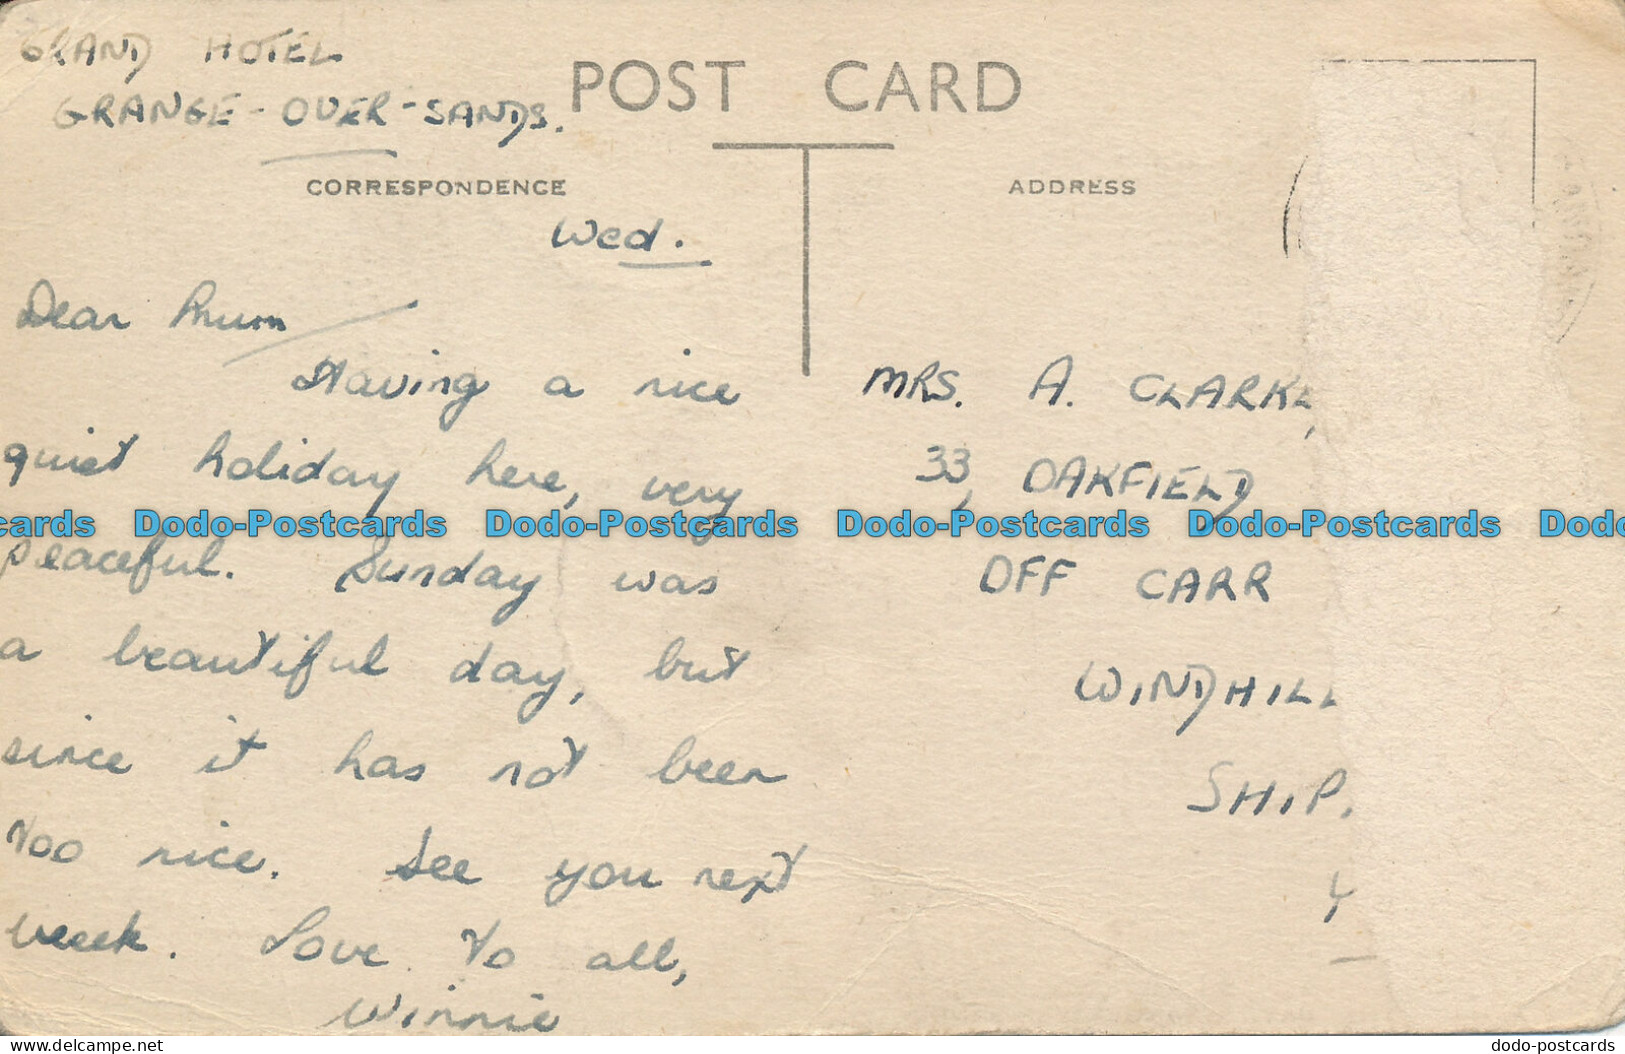 GRAND HOTEL
GRANGE-OVER-SANDS.
POST CARD
CORRESPONDENCE
ADDRESS
Wed.
Dear Mum
Having a nice
quiet holiday here, very
peaceful. Sunday was
a beautiful day, but
since it has not been
too nice. See you next
week. Love to all,
Winnie
MRS. A. CLARKE,
33, OAKFIELD
OFF CARR
WINDHILL
SHIP
Y
cards Dodo-Postcards Dodo-Postcards Dodo-Postcards Dodo-Postcards Dodo
delcampe.net
dodo-postcards